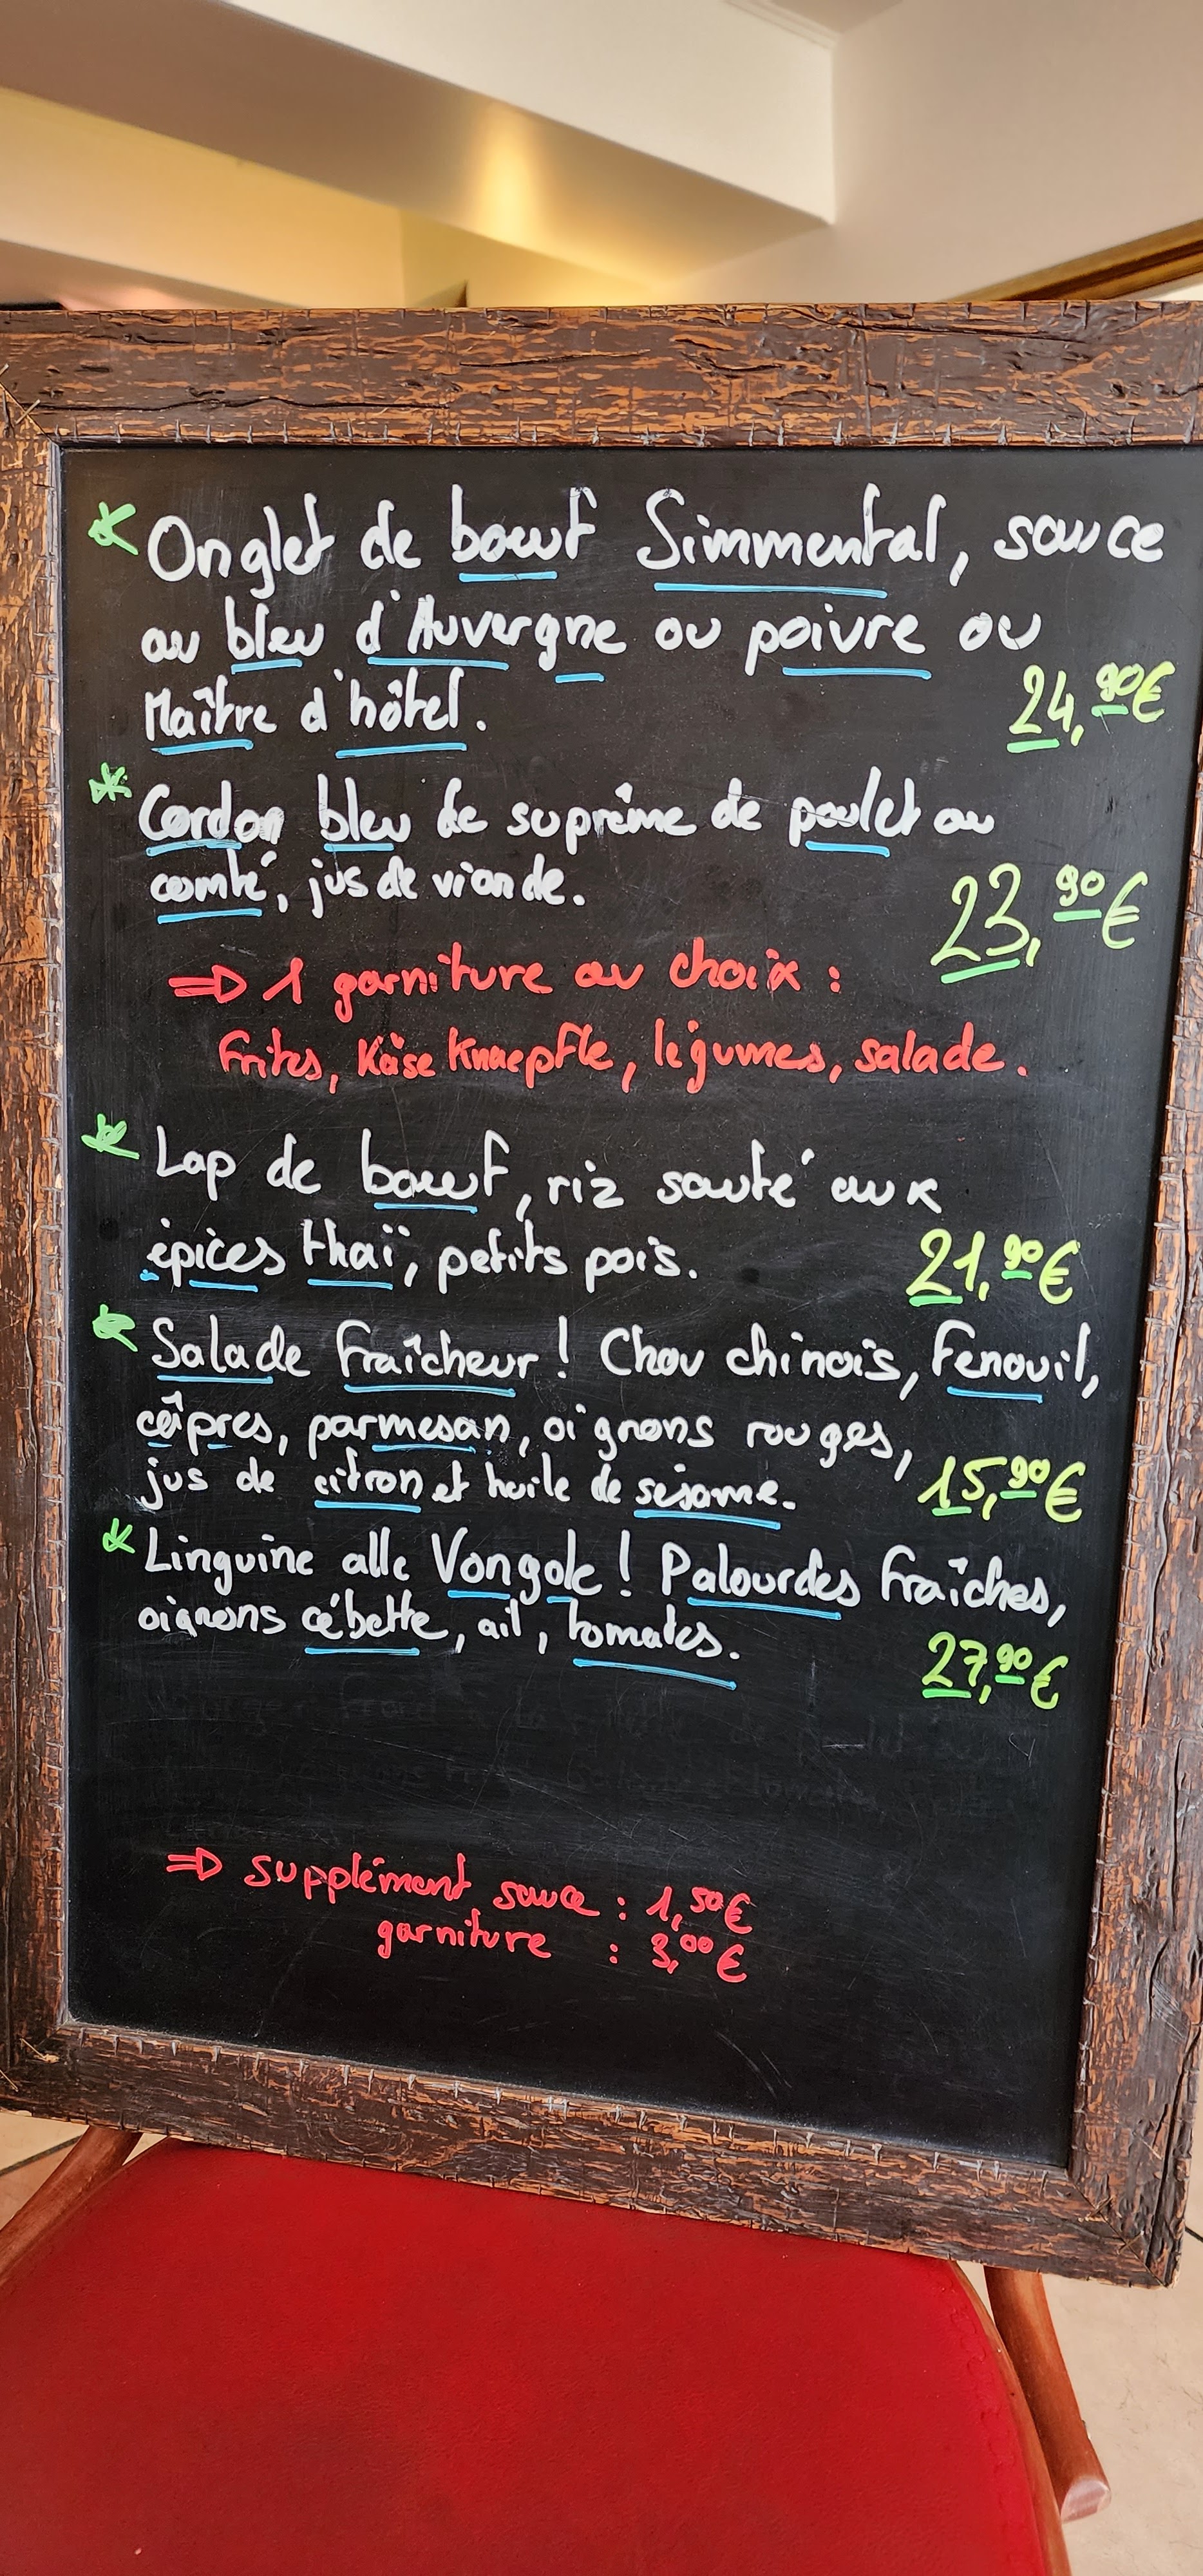 * Onglet de bœuf Simmental, sauce
au bleu d'Auvergne ou poivre ou
Maître d'hôtel. 24,90€
* Cordon bleu de suprême de poulet au
comté, jus de viande. 23,90€
⇒ 1 garniture au choix :
Frites, Käise Knaepfle, légumes, salade.
* Lap de bœuf, riz sauté aux
épices thaï, petits pois. 21,90€
* Salade fraîcheur ! Chou chinois, fenouil,
câpres, parmesan, oignons rouges,
jus de citron et huile de sésame. 15,90€
* Linguine alle Vongole ! Palourdes fraîches,
oignons cébette, ail, tomates. 27,90€
⇒ supplément sauce : 1,50€
garniture : 3,00€